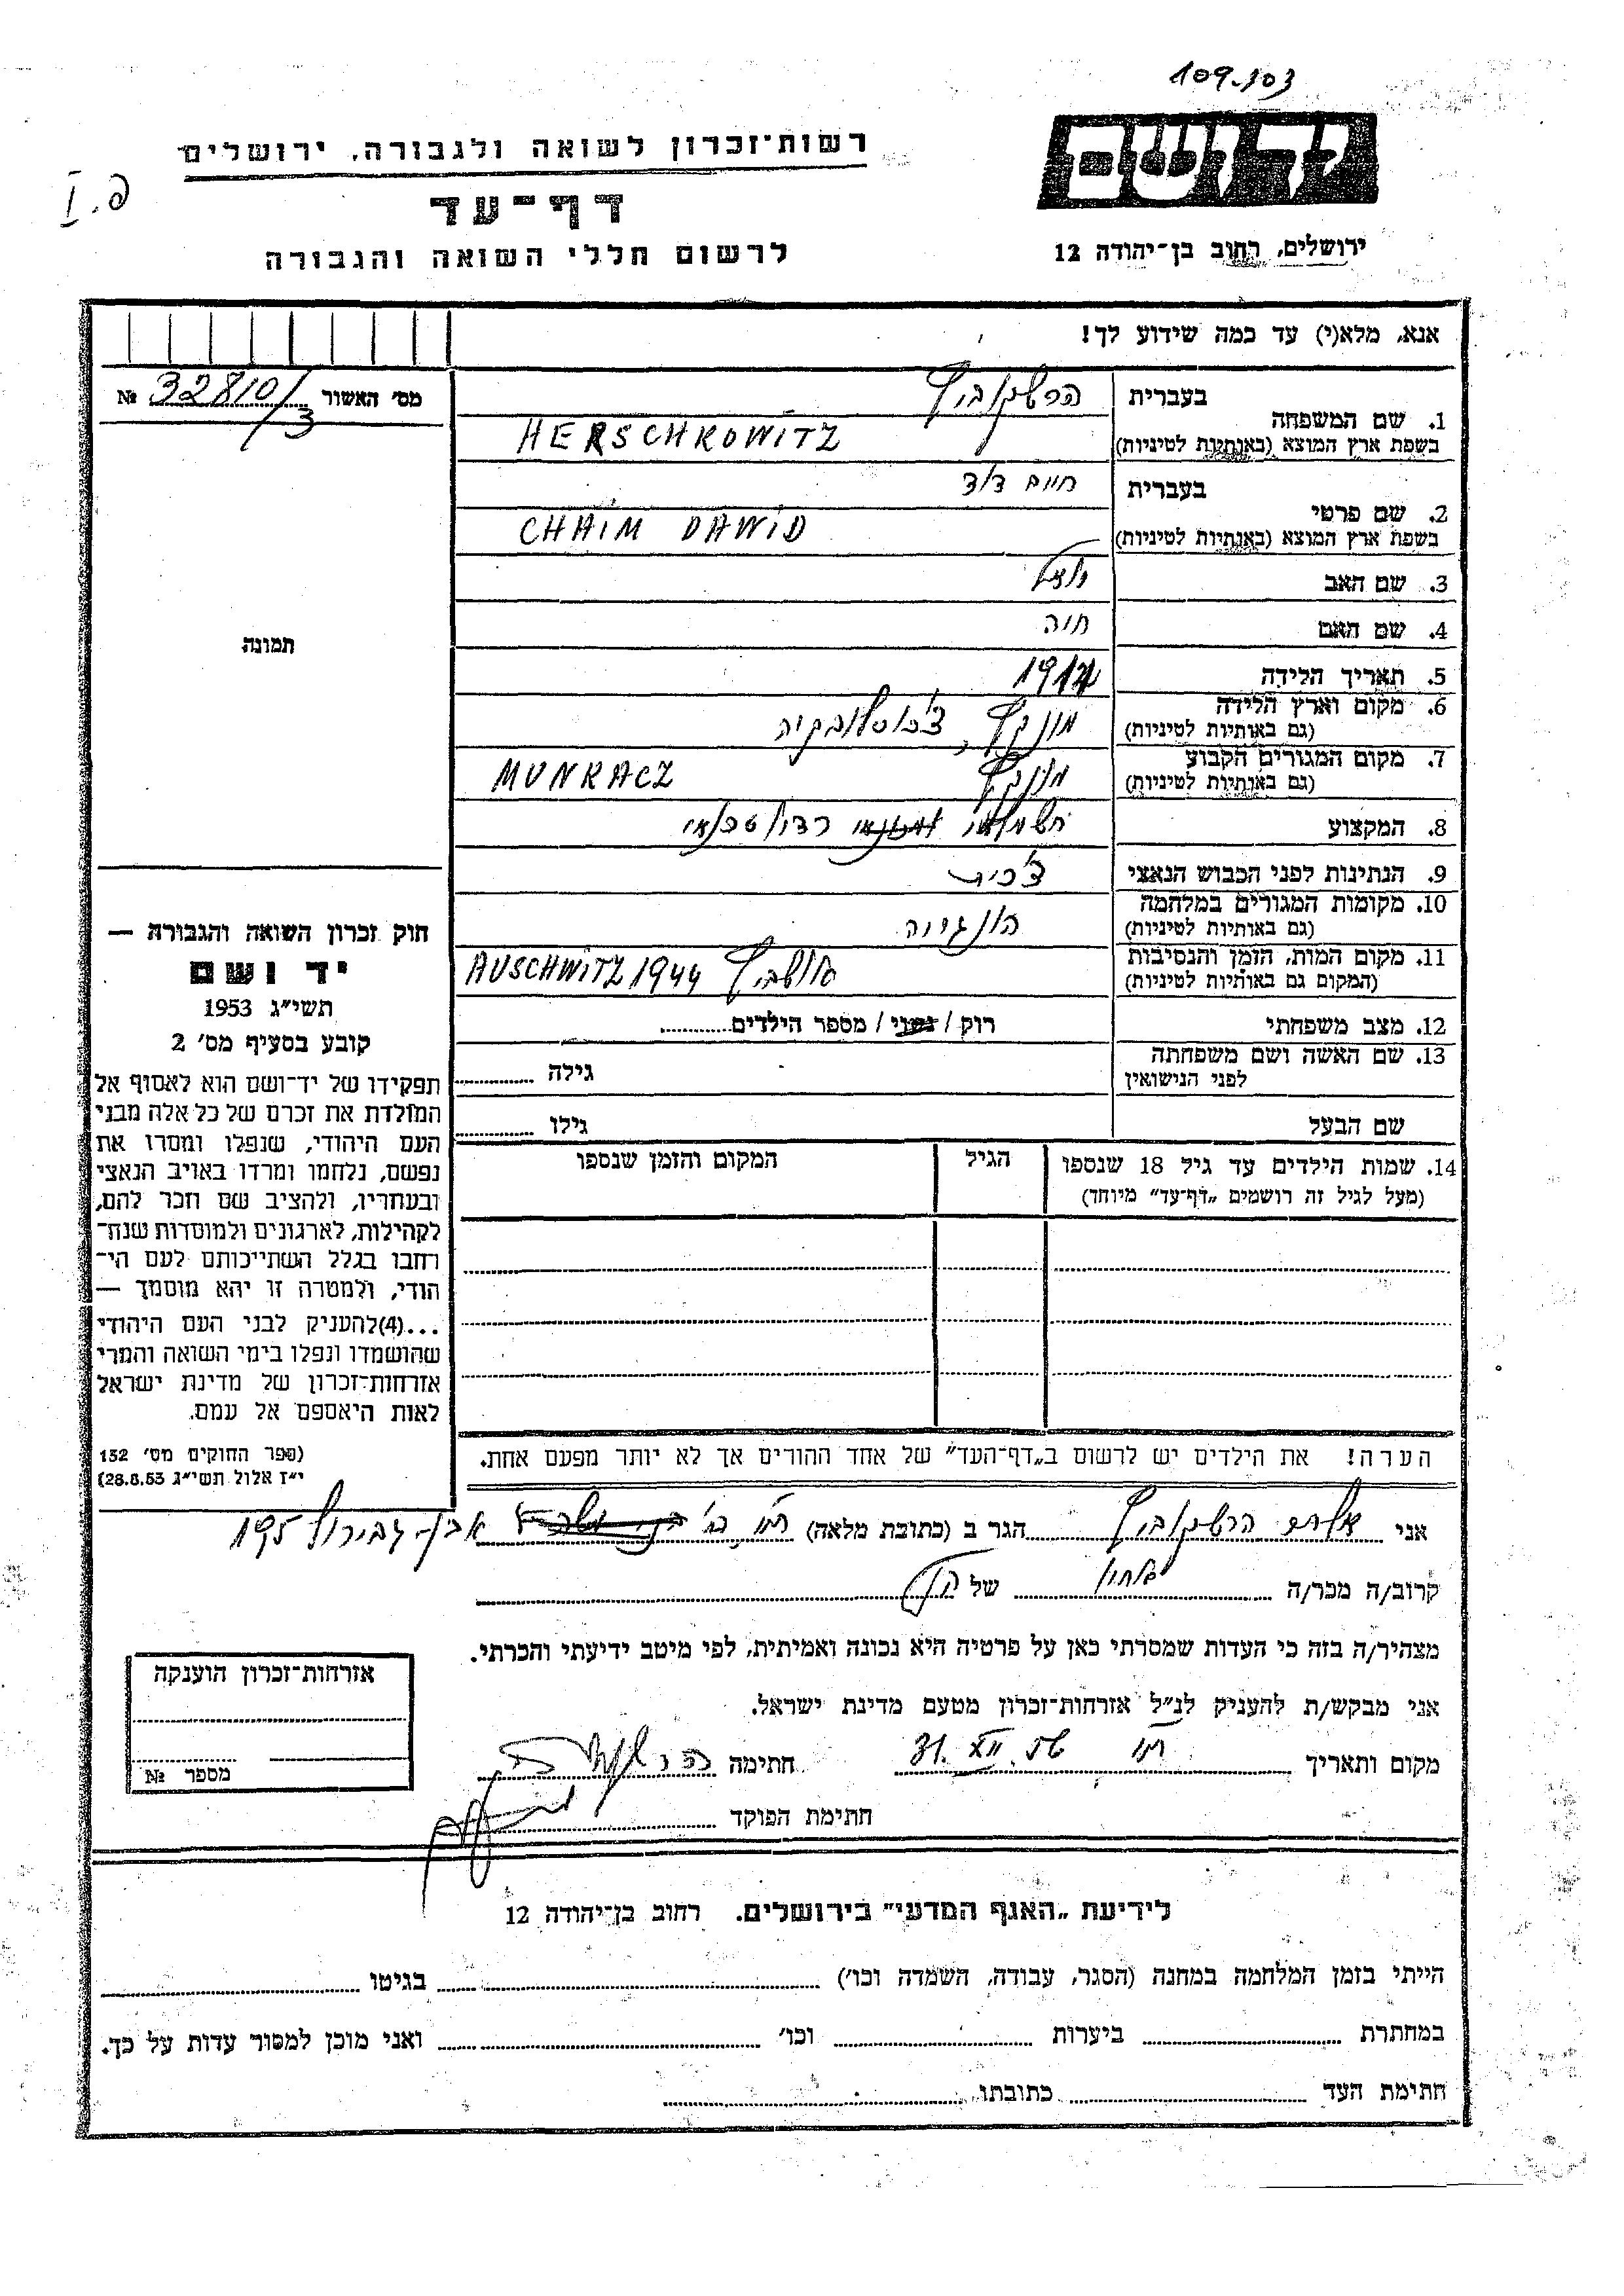 109.303
יד ושם
רשות־זכרון לשואה ולגבורה, ירושלים
דף־עד
לרשום חללי השואה והגבורה
ירושלים, רחוב בן־יהודה 12
פ. I
אנא, מלא(י) עד כמה שידוע לך!
מס׳ האשור № 32810/3
תמונה
1. שם המשפחה בעברית הרשקוביץ
בשפת ארץ המוצא (באותיות לטיניות) HERSCHKOWITZ
2. שם פרטי בעברית חיים דוד
בשפת ארץ המוצא (באותיות לטיניות) CHAIM DAWID
3. שם האב
4. שם האם חיה
5. תאריך הלידה
6. מקום וארץ הלידה (גם באותיות לטיניות) מונקץ, צ'כוסלובקיה
7. מקום המגורים הקבוע (גם באותיות לטיניות) מונקץ MUNKACZ
8. המקצוע חשמלאי
9. הנתינות לפני הכבוש הנאצי צ'כית
10. מקומות המגורים במלחמה (גם באותיות לטיניות) הונגריה
11. מקום המות, הזמן והנסיבות (המקום גם באותיות לטיניות) אושביץ AUSCHWITZ 1944
12. מצב משפחתי רוק / נשוי / מספר הילדים
13. שם האשה ושם משפחתה לפני הנישואין גילה
שם הבעל גילו
14. שמות הילדים עד גיל 18 שנספו (מעל לגיל זה רושמים „דף־עד" מיוחד) הגיל המקום והזמן שנספו
הערה! את הילדים יש לרשום ב„דף־העד" של אחד ההורים אך לא יותר מפעם אחת.
חוק זכרון השואה והגבורה —
יד ושם
תשי״ג 1953
קובע בסעיף מס׳ 2
תפקידו של יד־ושם הוא לאסוף אל
המולדת את זכרם של כל אלה מבני
העם היהודי, שנפלו ומסרו את
נפשם, נלחמו ומרדו באויב הנאצי
ובעוזריו, ולהציב שם וזכר להם,
לקהילות, לארגונים ולמוסדות שנח־
רבו בגלל השתייכותם לעם הי־
הודי, ולמטרה זו יהא מוסמך —
...(4)להעניק לבני העם היהודי
שהושמדו ונפלו בימי השואה והמרי
אזרחות־זכרון של מדינת ישראל
לאות היאספם אל עמם.
(ספר החוקים מס׳ 132
י״ז אלול תשי״ג 28.8.53)
אני הרשקובץ הגר ב (כתובת מלאה) אבן גבירול 195
קרוב/ה מכר/ה של
מצהיר/ה בזה כי העדות שמסרתי כאן על פרטיה היא נכונה ואמיתית, לפי מיטב ידיעתי והכרתי.
אני מבקש/ת להעניק לנ״ל אזרחות־זכרון מטעם מדינת ישראל.
מקום ותאריך 31. XII 56 חתימה
חתימת הפוקד
אזרחות־זכרון הוענקה
מספר №
לידיעת „האגף המדעי" בירושלים. רחוב בן־יהודה 12
הייתי בזמן המלחמה במחנה (הסגר, עבודה, השמדה וכו׳) בגיטו
במחתרת ביערות וכו׳ ואני מוכן למסור עדות על כך.
חתימת העד כתובתו